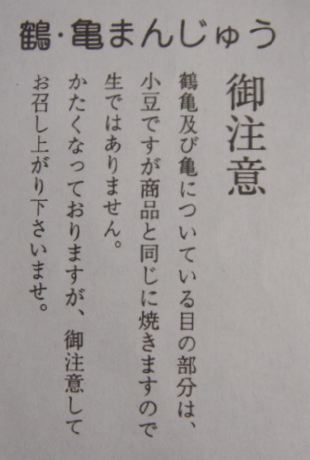 鶴・亀まんじゅう
御注意
鶴亀及び亀についている目の部分は、
小豆ですが商品と同じに焼きますので
生ではありません。
かたくなっておりますが、御注意して
お召し上がり下さいませ。